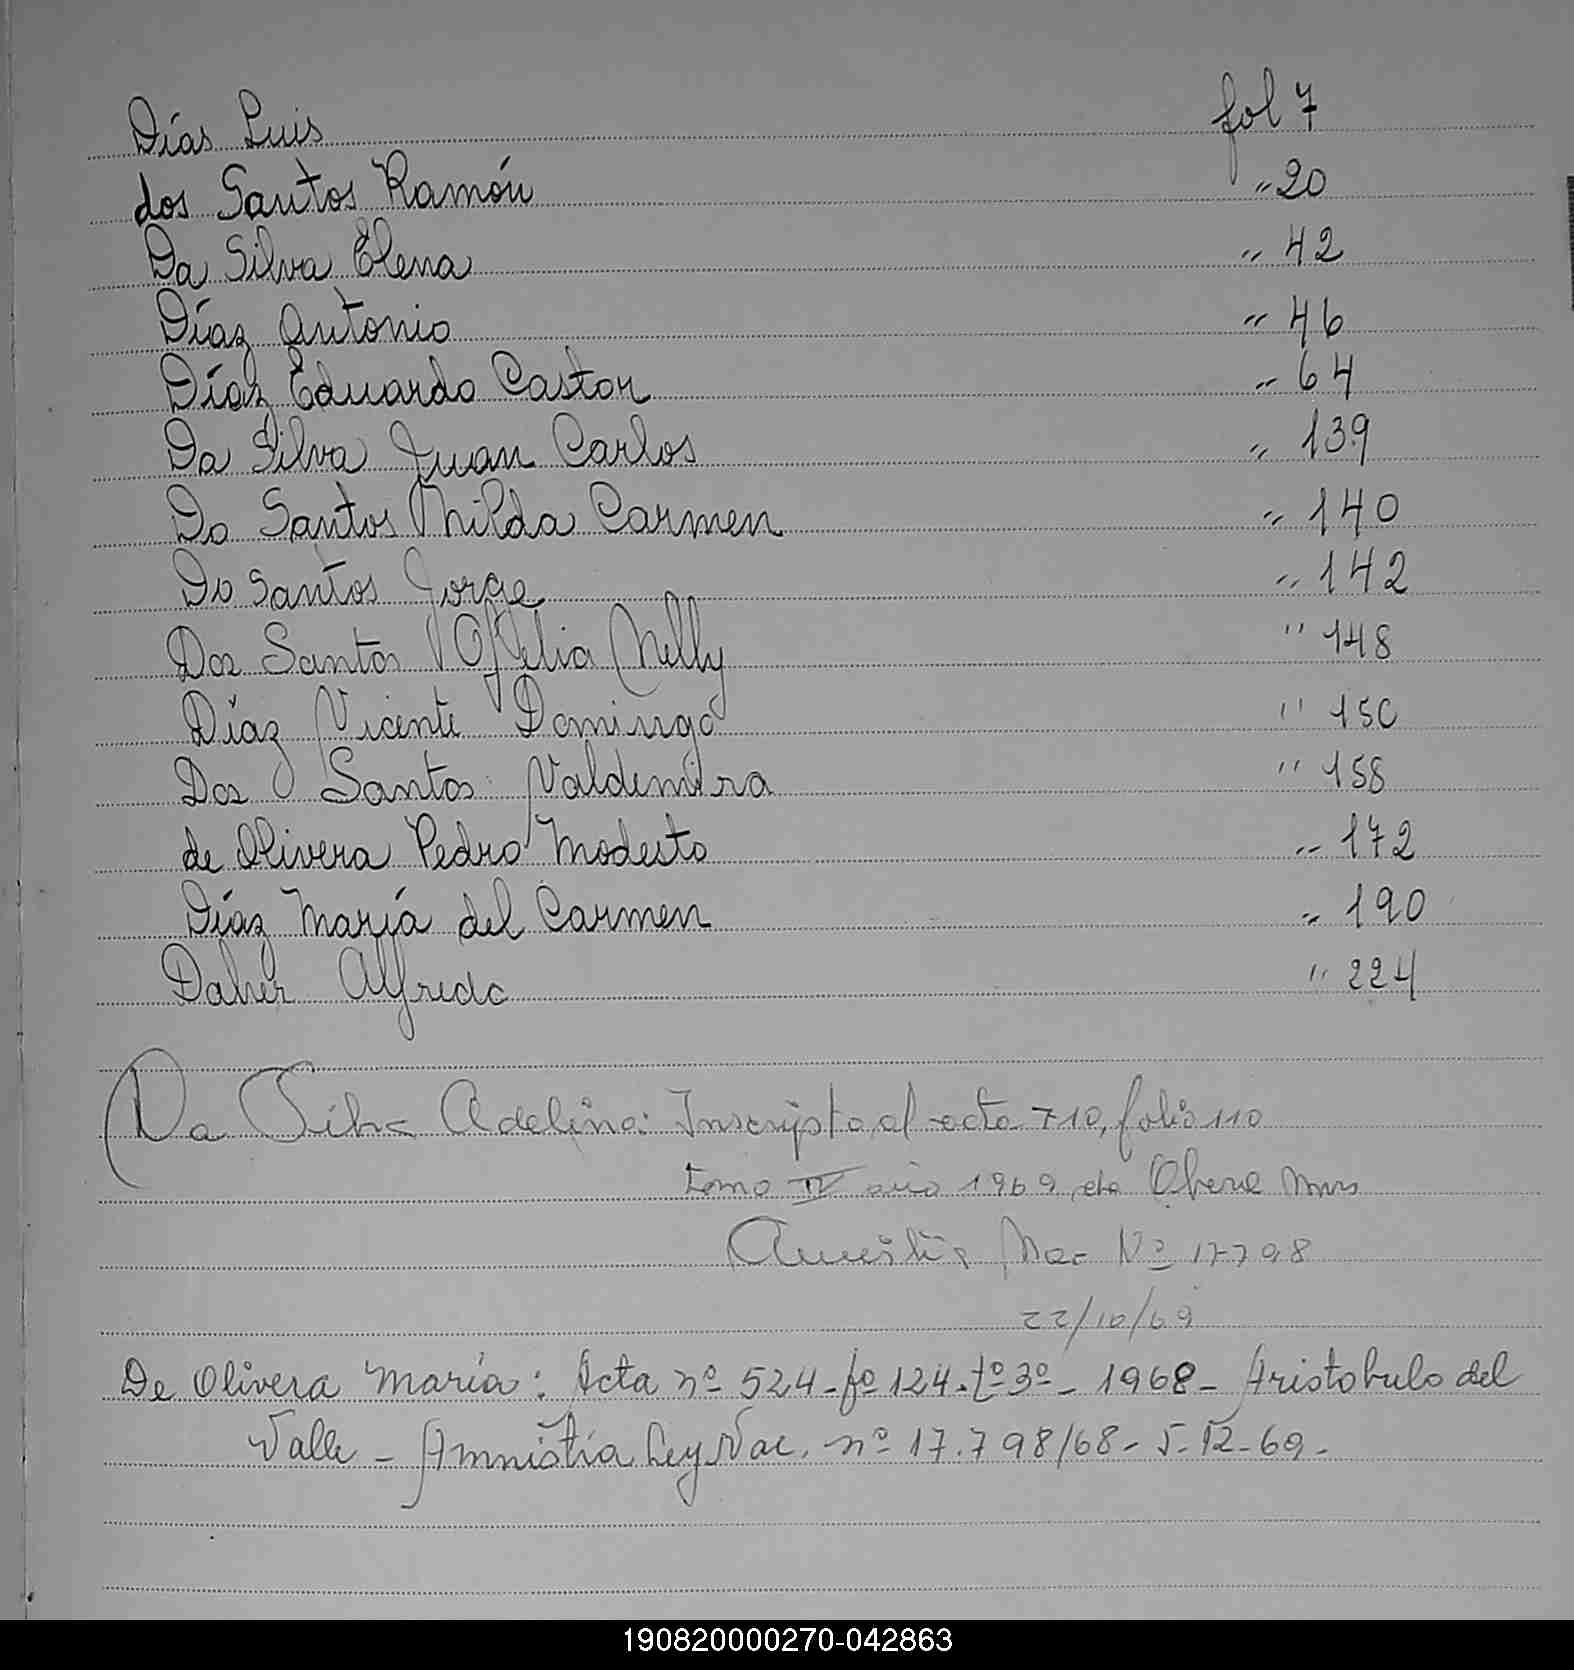 Días Luis fol 7
dos Santos Ramón " 20
Da Silva Elena " 42
Díaz Antonio " 46
Díaz Eduardo Castor " 64
Da Silva Juan Carlos " 139
Do Santos Nilda Carmen " 140
Do Santos Jorge " 142
Dos Santos Ofelia Nelly " 148
Díaz Vicente Domingo " 150
Dos Santos Valdemira " 158
de Olivera Pedro Modesto " 172
Díaz María del Carmen " 190
Daher Alfredo " 224
Da Silva Adelina: Inscripta al acta 710, folio 110
tomo IV año 1969 de Obera Mnes
Amnistía Nac Nº 17798
22/10/69
De Olivera María: Acta nº 524-fº 124-tº 3º- 1968- Aristobulo del
Valle - Amnistía Ley Nac. nº 17.798/68- 5-12-69-
190820000270-042863